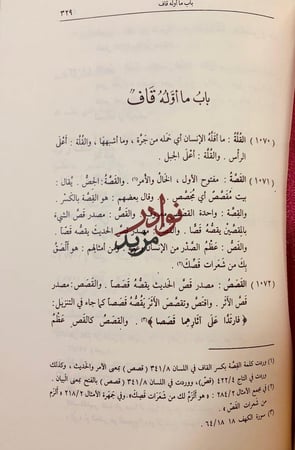 باب ما أوله قاف
٣٢٩
باب ما أوله قاف
(١٠٧٠) القلة : ما أقله الإنسان أي حمله من جرة ، وما أشبهها ، والقلة : أعلى
الرأس . والقلة : أعلى الجبل .
(١٠٧١) القصة : مفتوح الأول ، الخال والأمر(١). والقصة : الجص . يقال :
بيت مقصص أي مجصص . وقال بعضهم : هو القصة بالكسر .
والقصة : واحدة القصص . والقص : مصدر قص الشيء
بالمقصين يقصه قصا . والقص : مصدر قص الحديث يقصه قصا .
والقص : عظم الصدر من الإنسان ، ومن أمثالهم : هو ألصق
بك من شعرات قصك(٢).
(١٠٧٢) القصص : مصدر قص الحديث يقصه قصصا . والقصص : مصدر
قص الأثر . واقتص وتقصص الأثر يقصه قصصا كما جاء في التنزيل :
﴿ فارتدا على آثارهما قصصا ﴾(٣) . والقصص كالقص عظم
نوادر
مزيد
(١) وردت كلمة القصة بكسر القاف في اللسان ٣٤١/٨ (قصص) بمعنى الأمر والحديث ، وكذلك
في التاج ٤٢٢/٤ (قص) ، ووردت في اللسان ٣٤١/٨ (قصص) بالفتح بمعنى البيان .
(٢) في مجمع الأمثال ٢٨٤/٢ : «هو ألزم لك من شعرات قصك». وفي جمهرة الأمثال ٢١٨/٢ «ألزم
من شعرات القص» .
(٣) سورة الكهف ١٨ /٦٤ .